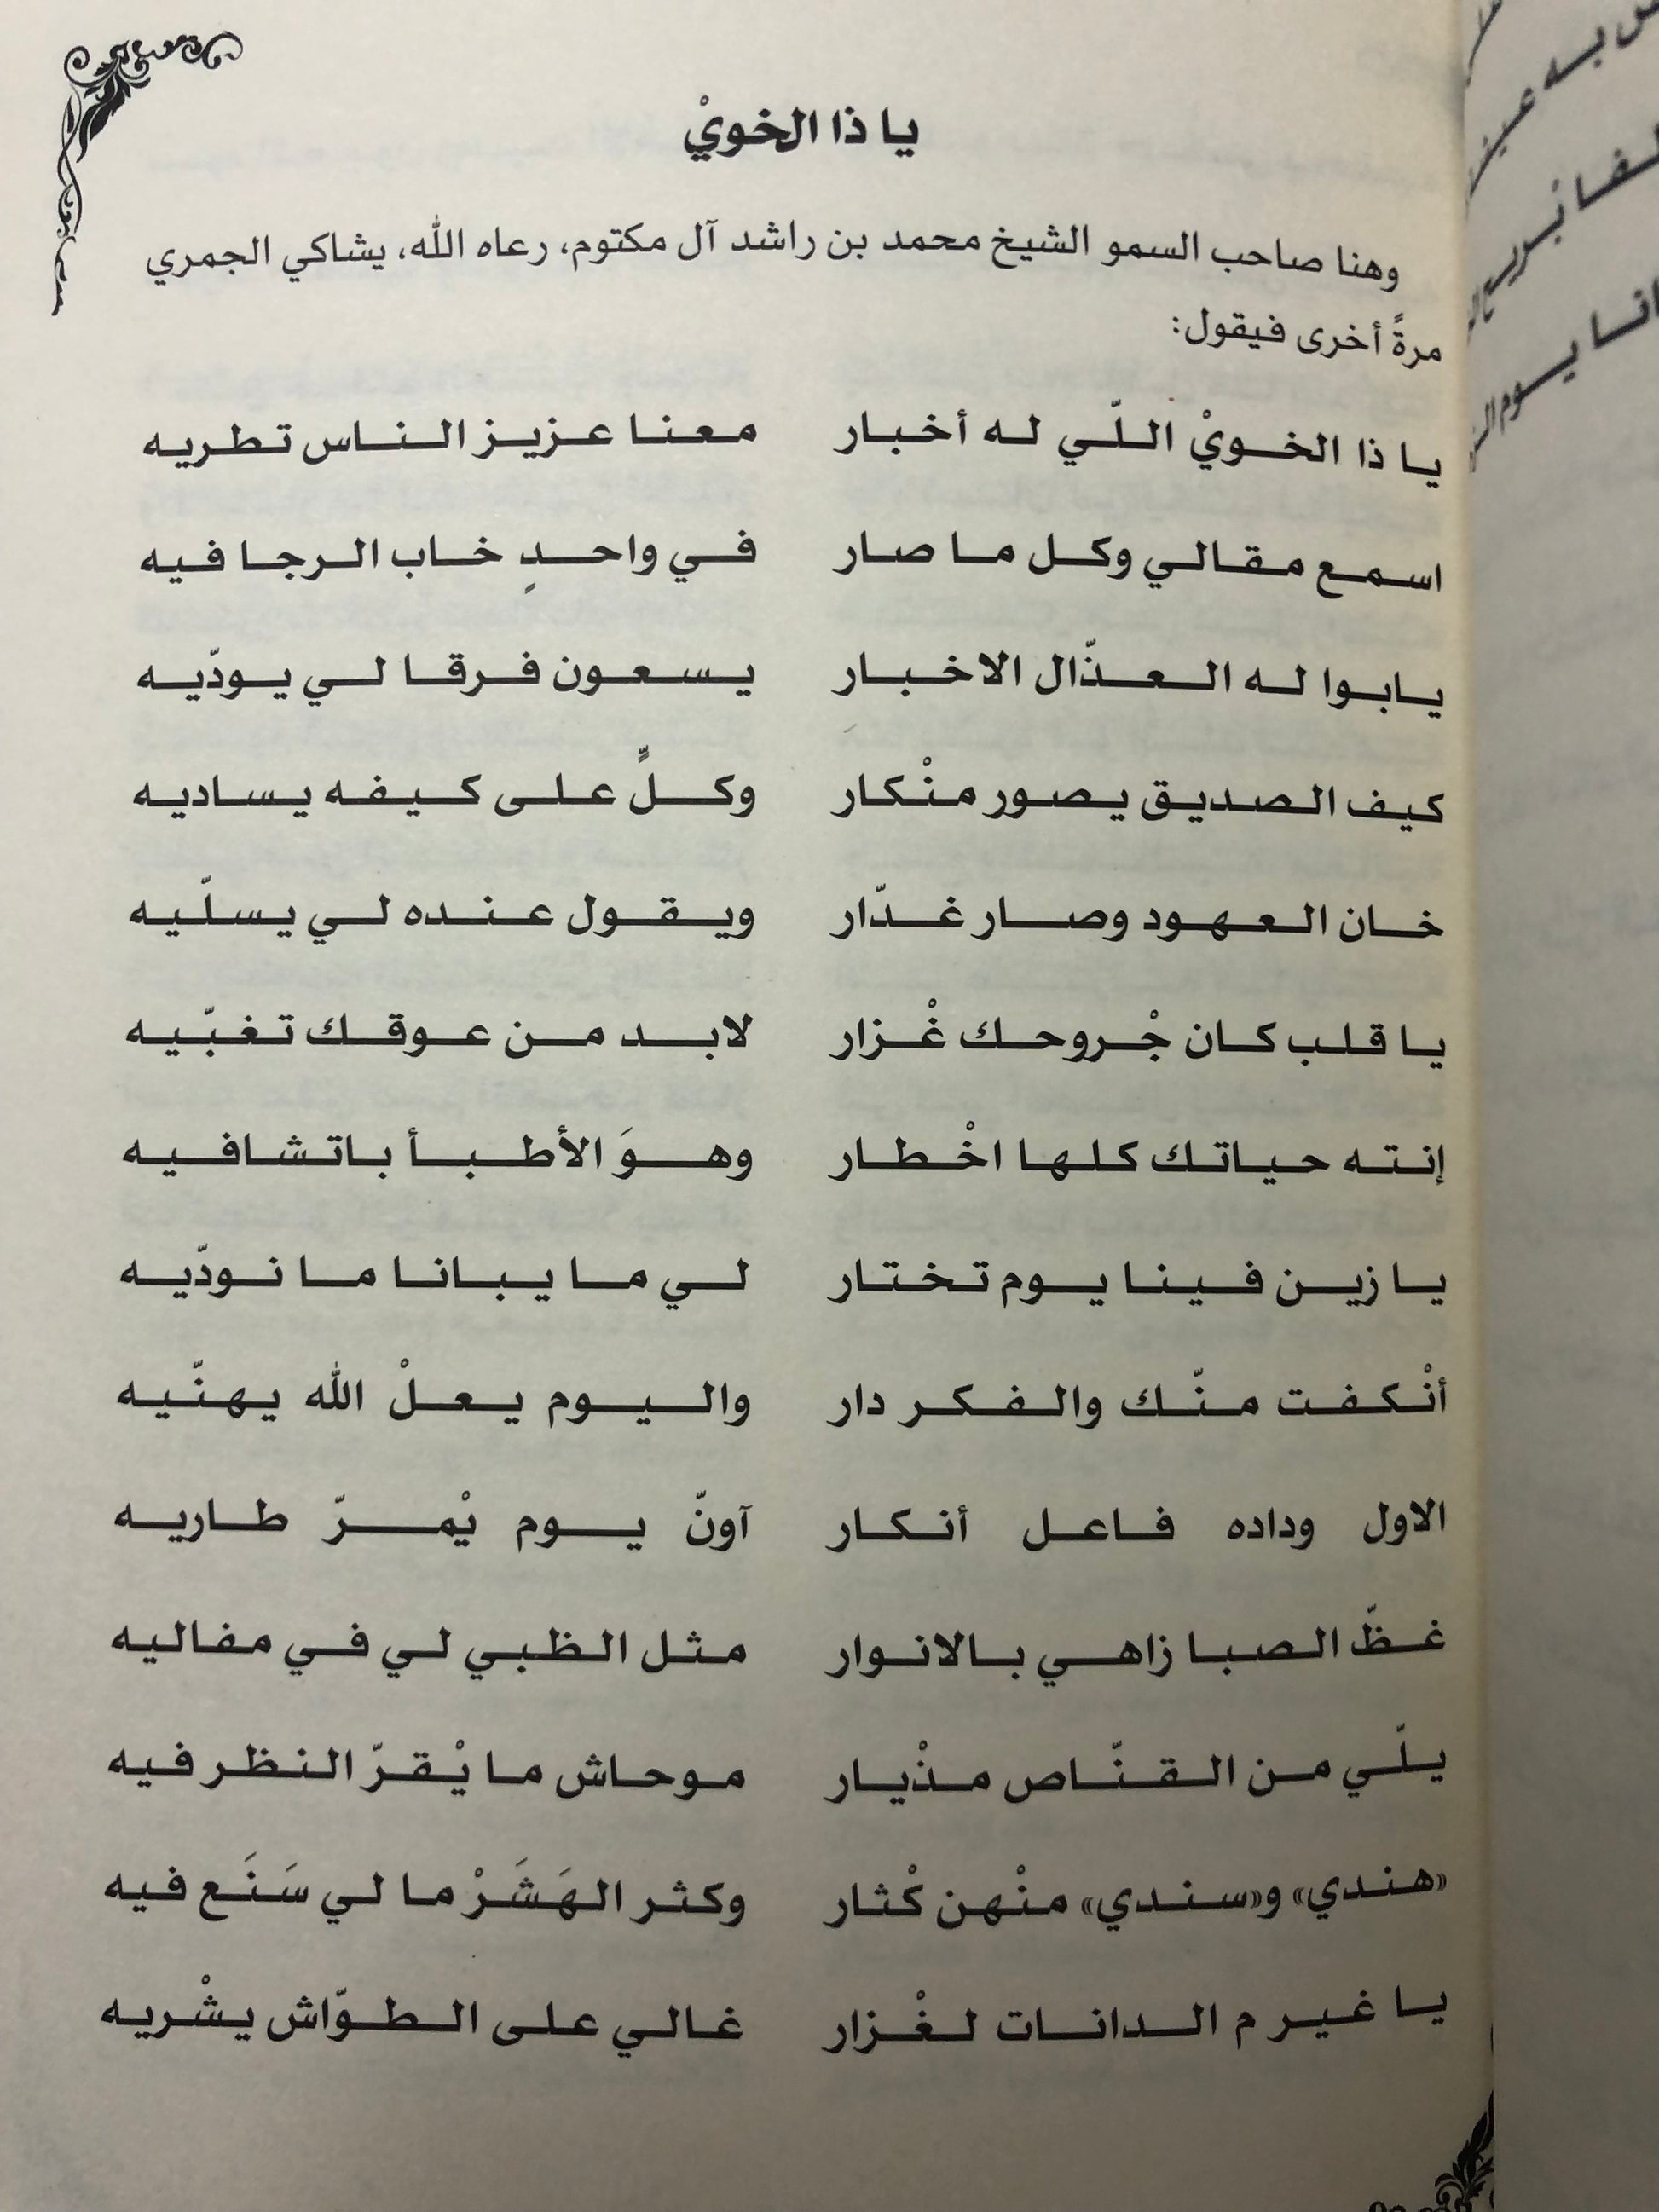 يا ذا الخويْ
وهنا صاحب السمو الشيخ محمد بن راشد آل مكتوم، رعاه الله، يشاكي الجمري
مرةً أخرى فيقول:
يا ذا الخويْ اللّي له أخبار معنا عزيز الناس تطريه
اسمع مقالي وكل ما صار في واحدٍ خاب الرجا فيه
يابوا له العذّال الاخبار يسعون فرقا لي يودّيه
كيف الصديق يصور منْكار وكلٍّ على كيفه يساديه
خان العهود وصار غدّار ويقول عنده لي يسلّيه
يا قلب كان جْروحك غْزار لابد من عوقك تغبّيه
إنته حياتك كلها اخْطار وهوَ الأطبأ باتشافيه
يا زين فينا يوم تختار لي ما يبانا ما نودّيه
أنْكفت منّك والفكر دار واليوم يعلْ الله يهنّيه
الاول وداده فاعل أنكار آونّ يوم يْمرّ طاريه
غظّ الصبا زاهي بالانوار مثل الظبي لي في مفاليه
يلّي من القنّاص مذْيار موحاش ما يْقرّ النظر فيه
«هندي» و«سندي» منْهن كْثار وكثر الهَشَرْ ما لي سَنَع فيه
يا غير م الدانات لغْزار غالي على الطوّاش يشْريه